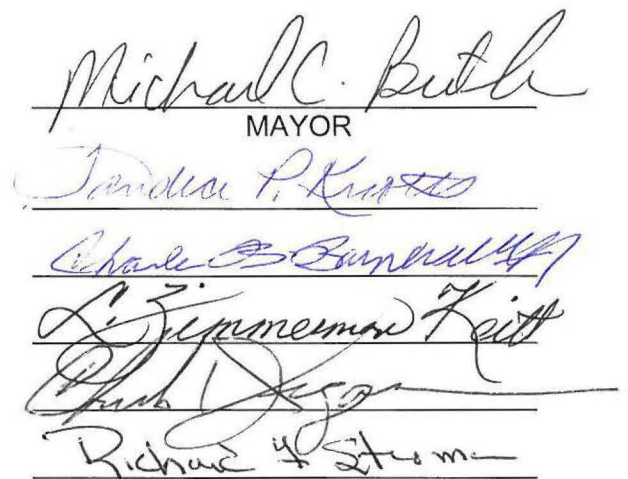 Michael C. Butler
MAYOR
Sandra P. Knotts
Charles B. Barnwell Jr
L. Zimmerman Keitt
Richard F. Stroman